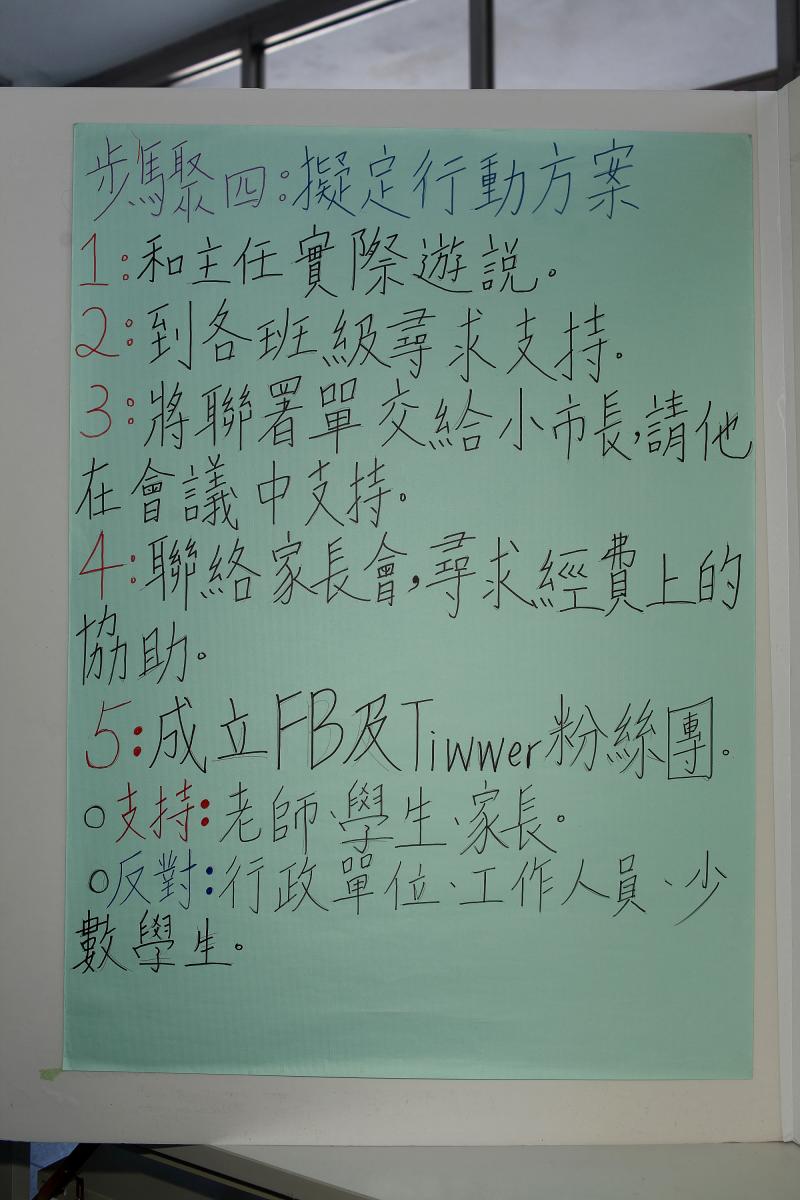 步驟四:擬定行動方案
1:和主任實際遊説。
2:到各班級尋求支持。
3:將聯署單交給小市長,請他
在會議中支持。
4:聯絡家長會,尋求經費上的
協助。
5:成立FB及Tiwwer粉絲團。
○支持:老師、學生、家長。
○反對:行政單位、工作人員、少
數學生。